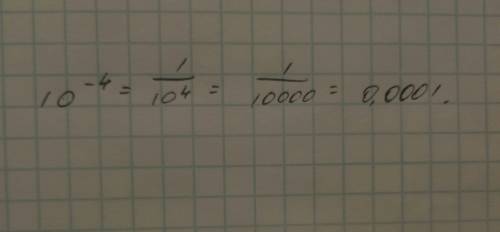 10⁻⁴ = 1/10⁴ = 1/10000 = 0,0001.